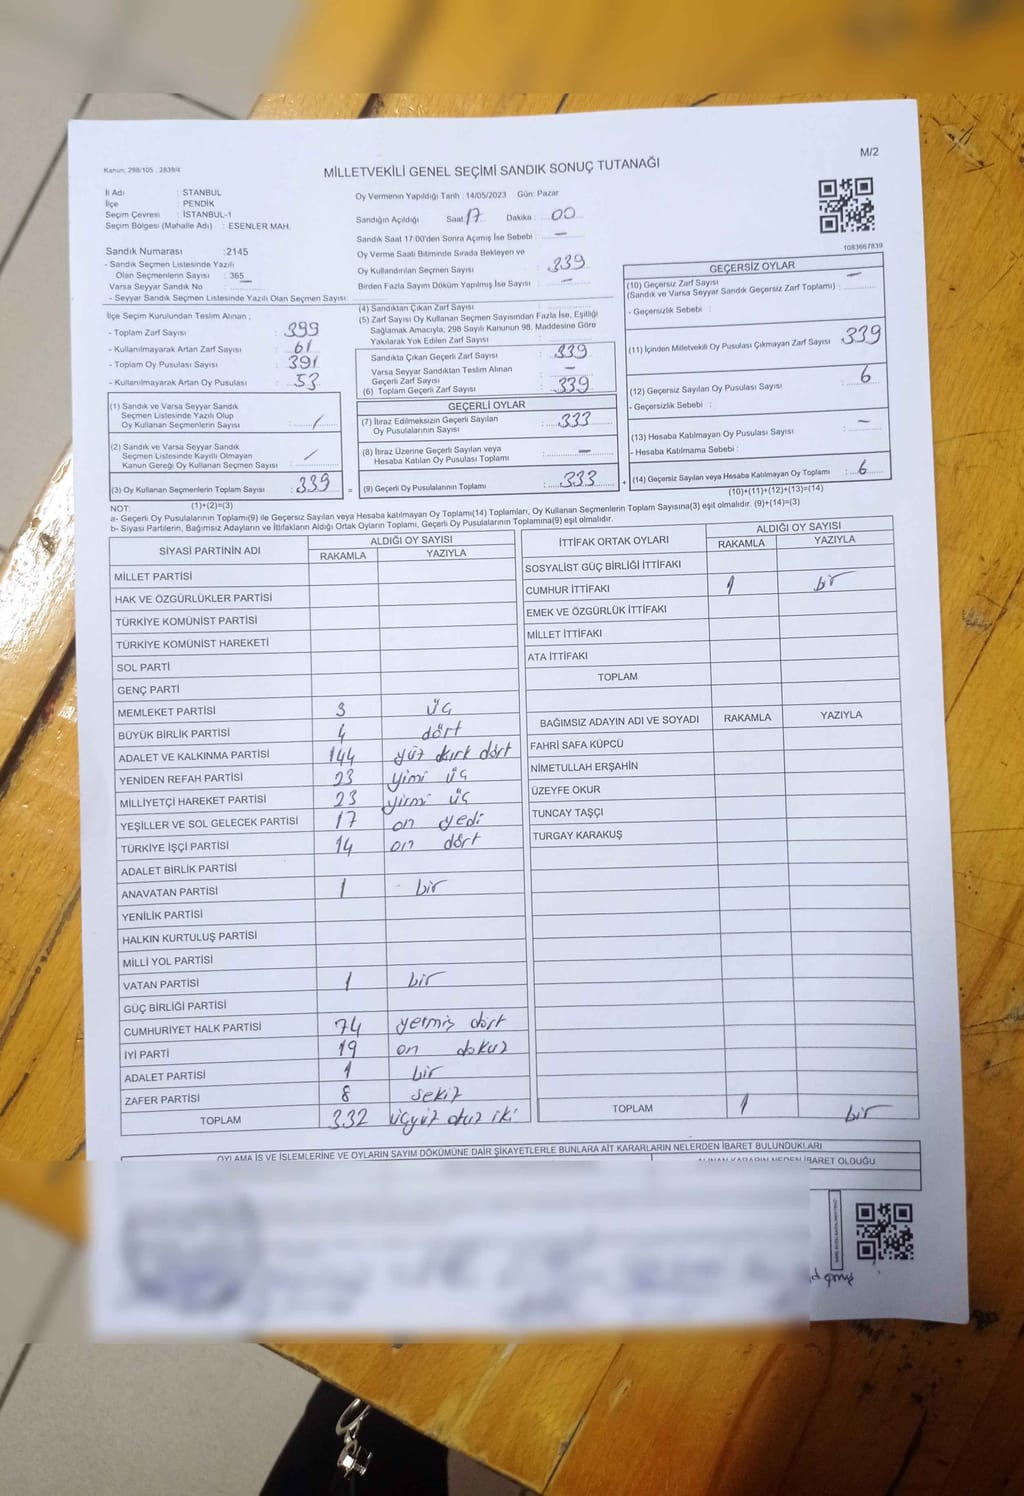 M/2
Kanun: 298/105 , 2839/4
MİLLETVEKİLİ GENEL SEÇİMİ SANDIK SONUÇ TUTANAĞI
İl Adı : STANBUL
İlçe : PENDİK
Seçim Çevresi : İSTANBUL-1
Seçim Bölgesi (Mahalle Adı) : ESENLER MAH.
Sandık Numarası :2145
- Sandık Seçmen Listesinde Yazılı
Olan Seçmenlerin Sayısı : 365
Varsa Seyyar Sandık No :
- Seyyar Sandık Seçmen Listesinde Yazılı Olan Seçmen Sayısı:
Oy Vermenin Yapıldığı Tarih :14/05/2023 Gün: Pazar
Sandığın Açıldığı Saat: 17 Dakika : 00
Sandık Saat 17:00'den Sonra Açımış İse Sebebi : —
Oy Verme Saati Bitiminde Sırada Bekleyen ve
Oy Kullandırılan Seçmen Sayısı : 339
Birden Fazla Sayım Döküm Yapılmış İse Sayısı : —
1083667839
İlçe Seçim Kurulundan Teslim Alınan ;
- Toplam Zarf Sayısı : 399
- Kullanılmayarak Artan Zarf Sayısı : 61
- Toplam Oy Pusulası Sayısı : 391
- Kullanılmayarak Artan Oy Pusulası : 53
(1) Sandık ve Varsa Seyyar Sandık
Seçmen Listesinde Yazılı Olup
Oy Kullanan Seçmenlerin Sayısı : /
(2) Sandık ve Varsa Seyyar Sandık
Seçmen Listesinde Kayıtlı Olmayan
Kanun Gereği Oy Kullanan Seçmen Sayısı : /
(3) Oy Kullanan Seçmenlerin Toplam Sayısı : 339
(1)+(2)=(3)
(4) Sandıktan Çıkan Zarf Sayısı :
(5) Zarf Sayısı Oy Kullanan Seçmen Sayısından Fazla İse, Eşitliği
Sağlamak Amacıyla, 298 Sayılı Kanunun 98. Maddesine Göre
Yakılarak Yok Edilen Zarf Sayısı :
Sandıkta Çıkan Geçerli Zarf Sayısı : 339
Varsa Seyyar Sandıktan Teslim Alınan
Geçerli Zarf Sayısı : —
(6) Toplam Geçerli Zarf Sayısı : 339
GEÇERLİ OYLAR
(7) İtiraz Edilmeksizin Geçerli Sayılan
Oy Pusulalarının Sayısı : 333
(8) İtiraz Üzerine Geçerli Sayılan veya
Hesaba Katılan Oy Pusulası Toplamı : —
= (9) Geçerli Oy Pusulalarının Toplamı : 333 +
GEÇERSİZ OYLAR
(10) Geçersiz Zarf Sayısı —
(Sandık ve Varsa Seyyar Sandık Geçersiz Zarf Toplamı) :
- Geçersizlik Sebebi :
(11) İçinden Milletvekili Oy Pusulası Çıkmayan Zarf Sayısı 339
(12) Geçersiz Sayılan Oy Pusulası Sayısı : 6
- Geçersizlik Sebebi :
(13) Hesaba Katılmayan Oy Pusulası Sayısı : —
- Hesaba Katılmama Sebebi :
(14) Geçersiz Sayılan veya Hesaba Katılmayan Oy Toplamı : 6
(10)+(11)+(12)+(13)=(14)
NOT:
a- Geçerli Oy Pusulalarının Toplamı(9) ile Geçersiz Sayılan veya Hesaba Katılmayan Oy Toplamı(14) Toplamları, Oy Kullanan Seçmenlerin Toplam Sayısına(3) eşit olmalıdır. (9)+(14)=(3)
b- Siyasi Partilerin, Bağımsız Adayların ve İttifakların Aldığı Ortak Oyların Toplamı, Geçerli Oy Pusulalarının Toplamına(9) eşit olmalıdır.
SİYASİ PARTİNİN ADI ALDIĞI OY SAYISI
RAKAMLA YAZIYLA
MİLLET PARTİSİ
HAK VE ÖZGÜRLÜKLER PARTİSİ
TÜRKİYE KOMÜNİST PARTİSİ
TÜRKİYE KOMÜNİST HAREKETİ
SOL PARTİ
GENÇ PARTİ
MEMLEKET PARTİSİ 3 üç
BÜYÜK BİRLİK PARTİSİ 4 dört
ADALET VE KALKINMA PARTİSİ 144 yüz kırk dört
YENİDEN REFAH PARTİSİ 23 yimi üç
MİLLİYETÇİ HAREKET PARTİSİ 23 yirmi üç
YEŞİLLER VE SOL GELECEK PARTİSİ 17 on yedi
TÜRKİYE İŞÇİ PARTİSİ 14 on dört
ADALET BİRLİK PARTİSİ
ANAVATAN PARTİSİ 1 bir
YENİLİK PARTİSİ
HALKIN KURTULUŞ PARTİSİ
MİLLİ YOL PARTİSİ
VATAN PARTİSİ 1 bir
GÜÇ BİRLİĞİ PARTİSİ
CUMHURİYET HALK PARTİSİ 74 yetmiş dört
İYİ PARTİ 19 on dokuz
ADALET PARTİSİ 1 bir
ZAFER PARTİSİ 8 sekiz
TOPLAM 332 üçyüz otuz iki
İTTİFAK ORTAK OYLARI ALDIĞI OY SAYISI
RAKAMLA YAZIYLA
SOSYALİST GÜÇ BİRLİĞİ İTTİFAKI
CUMHUR İTTİFAKI 1 bir
EMEK VE ÖZGÜRLÜK İTTİFAKI
MİLLET İTTİFAKI
ATA İTTİFAKI
TOPLAM
BAĞIMSIZ ADAYIN ADI VE SOYADI RAKAMLA YAZIYLA
FAHRİ SAFA KÜPCÜ
NİMETULLAH ERŞAHİN
ÜZEYFE OKUR
TUNCAY TAŞÇI
TURGAY KARAKUŞ
TOPLAM 1 bir
OYLAMA İŞ VE İŞLEMLERİNE VE OYLARIN SAYIM DÖKÜMÜNE DAİR ŞİKAYETLERLE BUNLARA AİT KARARLARIN NELERDEN İBARET BULUNDUKLARI
ALINAN KARARIN NEDEN İBARET OLDUĞU